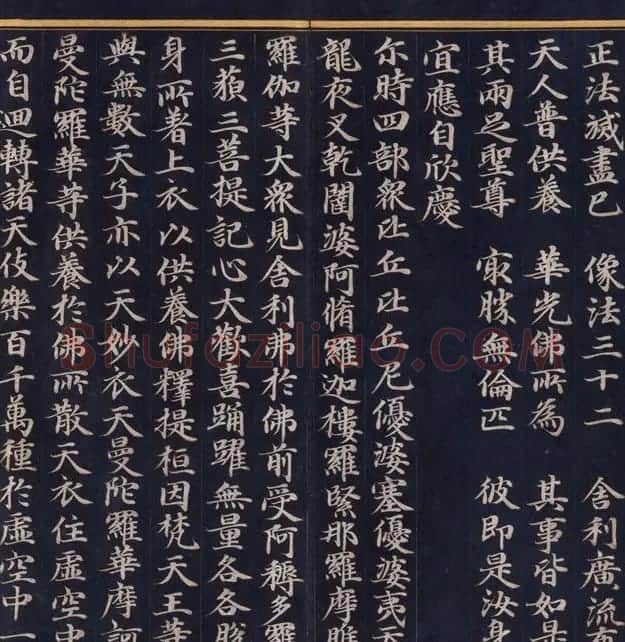 正法滅盡已　像法三十二　舍利廣流
天人普供養　華光佛所為　其事皆如是
其兩足聖尊　㝡勝無倫匹　彼即是汝身
宜應自欣慶
尒時四部衆比丘比丘尼優婆塞優婆夷天
龍夜叉乾闥婆阿脩羅迦樓羅緊那羅摩睺
羅伽等大衆見舍利弗於佛前受阿耨多羅
三藐三菩提記心大歡喜踊躍無量各各脫
身所著上衣以供養佛釋提桓因梵天王等
與無數天子亦以天妙衣天曼陀羅華摩訶
曼陀羅華等供養於佛所散天衣住虛空中
而自迴轉諸天伎樂百千萬種於虛空中一
Shufaziliao.com